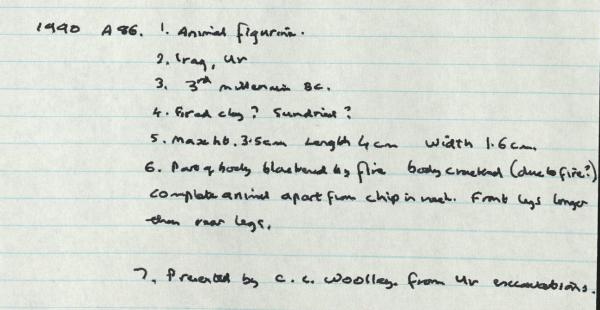 1990 A86. 1. Animal figurine.
2. Iraq, Ur
3. 3rd millennium BC.
4. Fired clay? Sundried?
5. Max ht. 3.5cm Length 4cm Width 1.6cm
6. Part of body blackened by fire body cracked (due to fire?)
complete animal apart from chip in neck. Front legs longer
than rear legs.
7. Presented by C. L. Woolley. From Ur excavations.